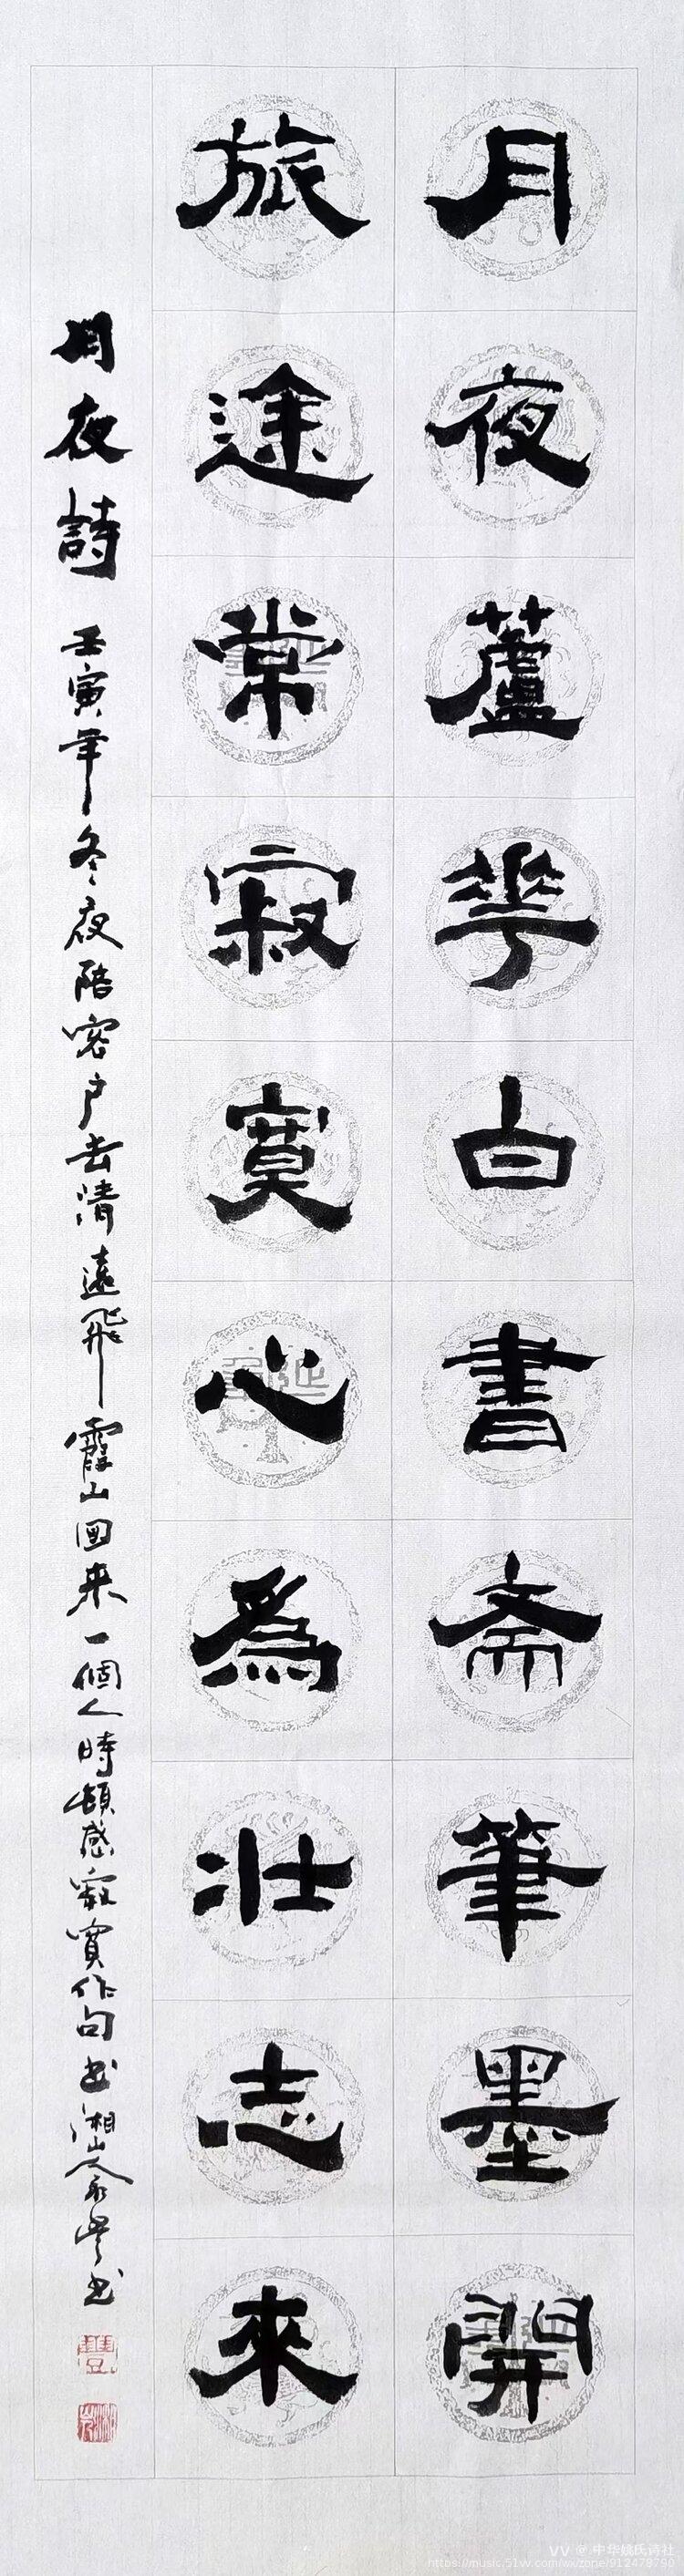 月夜蘆花白書斋筆墨開
旅途常寂寞心為壯志來
月夜詩 壬寅年冬夜陪客户去清遠飛霞山回来一個人時頓感寂寞作句书湘山
VV @ 中华姚氏诗社
https://music.51vv.com/wvzone/912478790